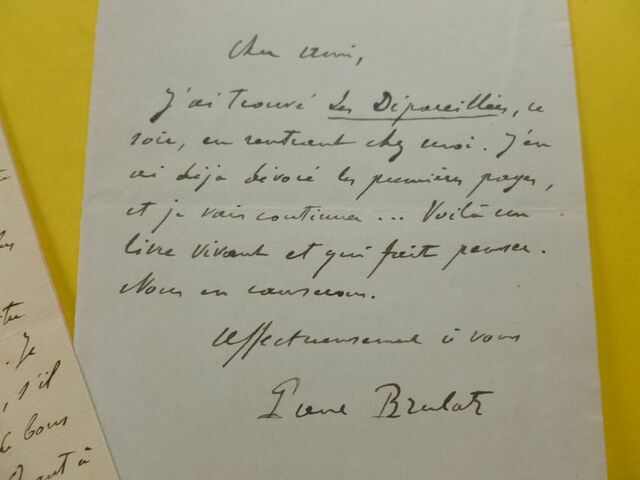 Cher ami,
J'ai trouvé Les Dépareillées, ce
soir, en rentrant chez moi. J'en
ai déjà dévoré les premières pages,
et je vais continuer... Voilà un
livre vivant et qui fait penser.
Nous en causerons.
Affectueusement à vous
Pierre Brulat
tu
. Je
, s'il
bous
à